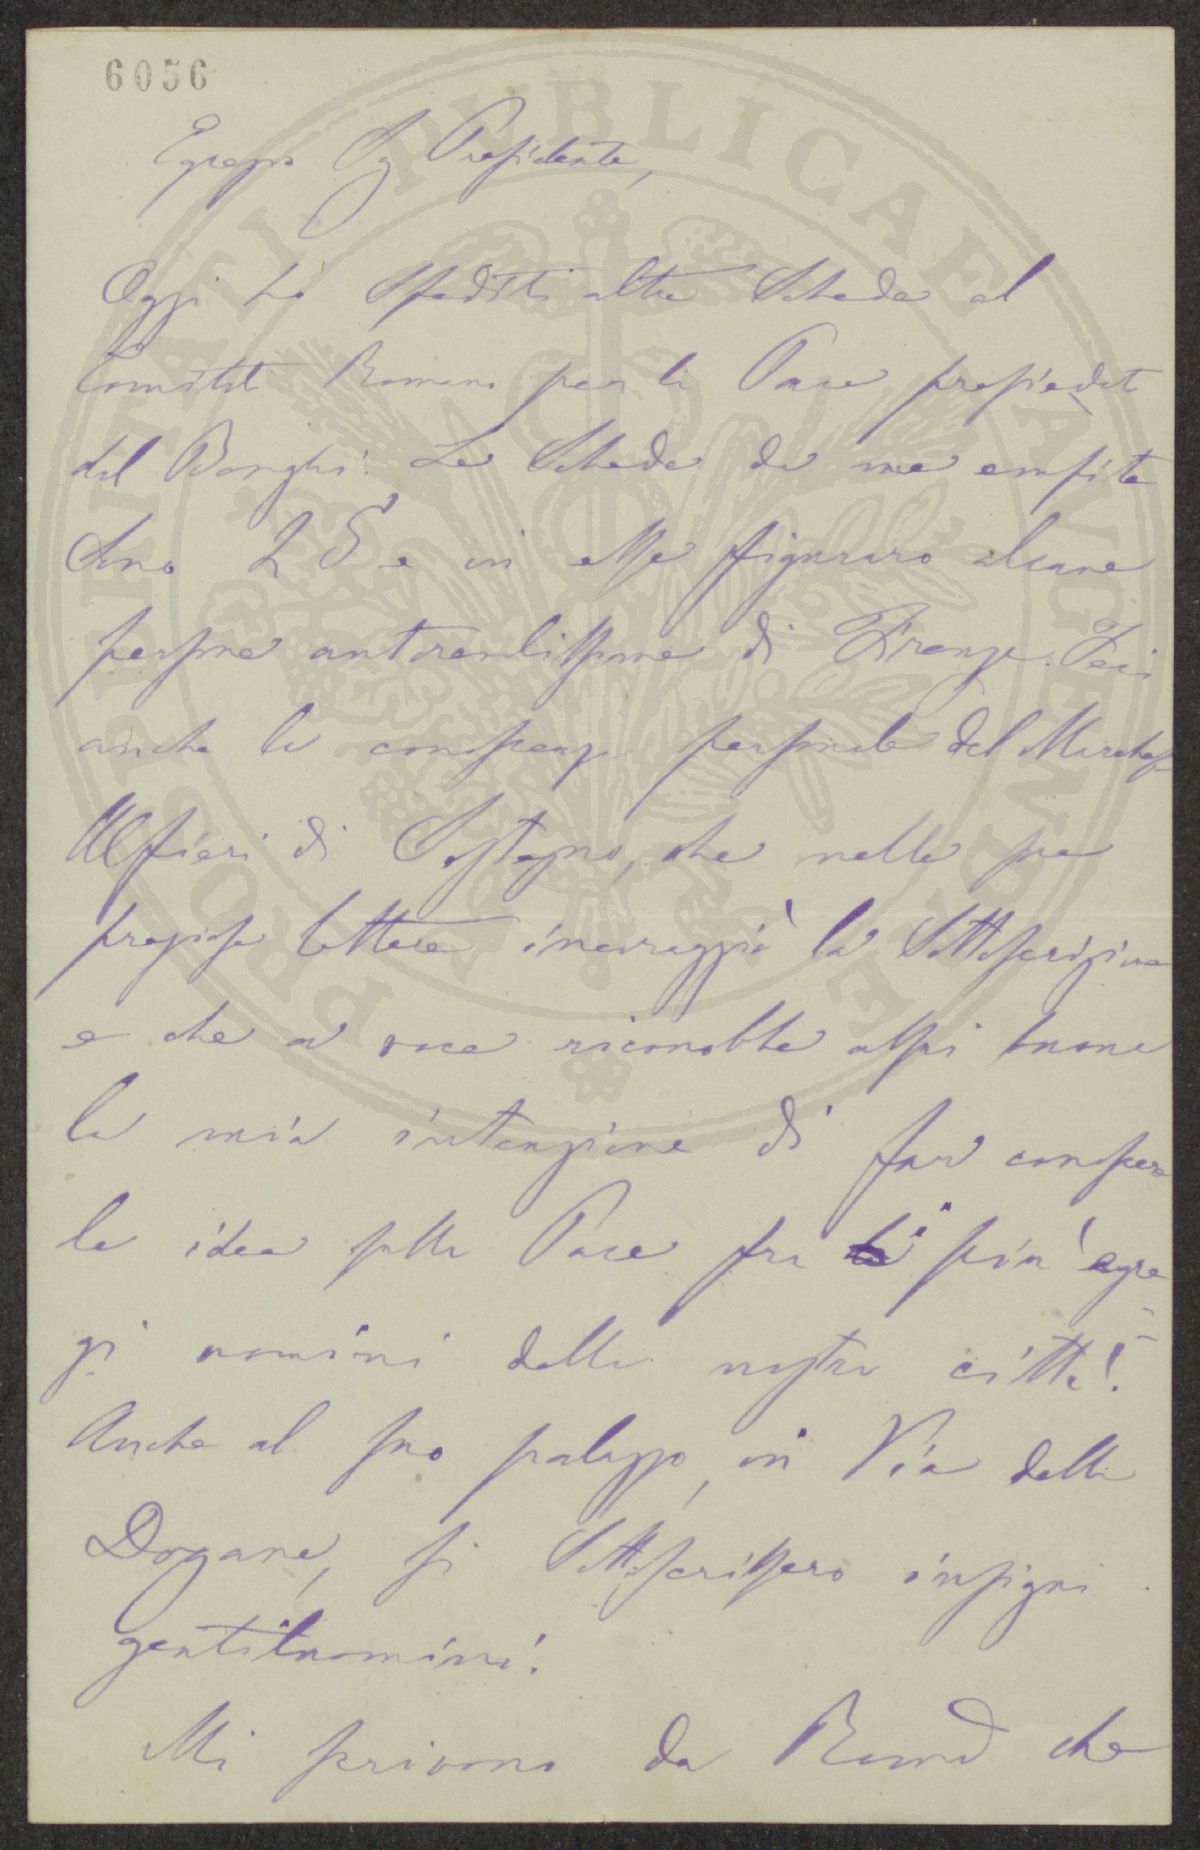 6056
Egregio Sig Presidente,
Oggi ho spediti altre Schede al
Comitato Romano per la Pace presieduto
dal Bonghi. Le Schede da me empite
sono 25 e in esse figurano alcune
persone autorevolissime di Firenze. Feci
anche la conoscenza personale del Marchese
Alfieri di Sostegno, che nella sua
preziosa lettera incoraggiò la Sottoscrizione
e che a voce riconobbe assai buona
la mia intenzione di far conoscere
le idee sulla Pace fra i più egre
gi uomini della nostra città!
Anche al suo palazzo, in Via della
Dogana, si sottoscrissero insigni
gentiluomini.
Mi scrivono da Roma che
PROSPERITATI PUBLICAE AUGENDAE